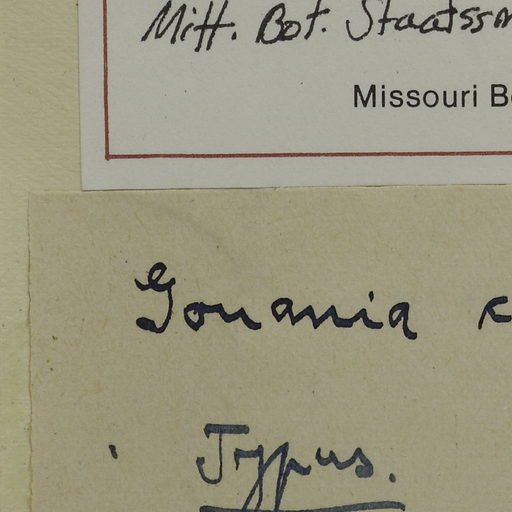 Mitt. Bot. Staatssm
Missouri B
Gouania c
Typus.